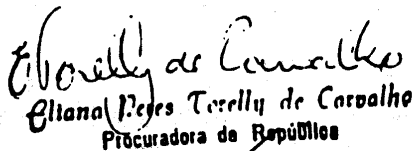 ETorelly de Carvalho
Eliana Peres Torelly de Carvalho
Procuradora da República